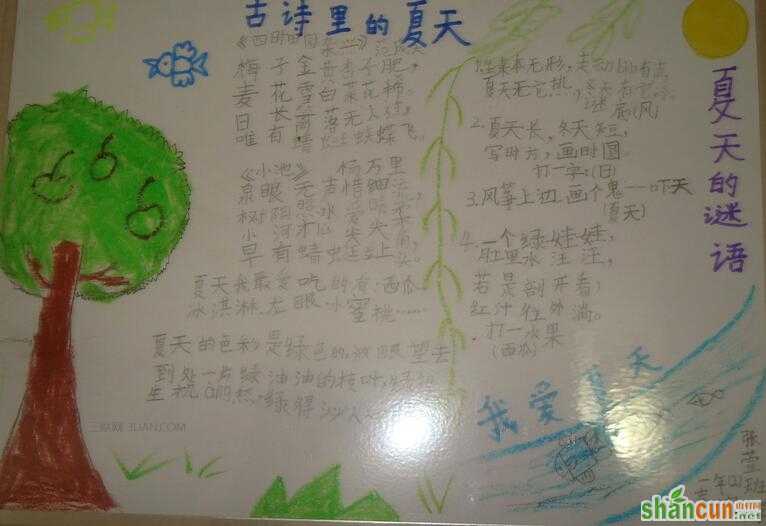 古诗里的夏天
《四时田园杂兴》
梅子金黄杏子肥，
麦花雪白菜花稀。
日长 落无人过，
唯有蜻 蛱蝶飞。
《小池》 杨万里
泉眼无声惜细流
树阴照水爱晴柔
小河才 尖尖角
早有蜻 立上头
夏天我最爱吃的是：西瓜、
冰淇淋、龙眼、水蜜桃……
夏天的色彩是绿色的，放眼望去
到处一片绿油油的枝叶，
生机 然，绿得
夏天的谜语
生来本无形，走动 有声
夏天无它热， 天有它
谜底(风)
2.夏天长，冬天短，
写时方，画时圆
打一字：(日)
3.风筝上 画个鬼——吓天
(夏天)
4.一个绿娃娃，
肚里水汪汪，
若是剖开看，
红汁往外淌。
打一水果
(西瓜)
我爱夏天
张萱
一年(2)班
三联网 3LIAN.COM
shancun